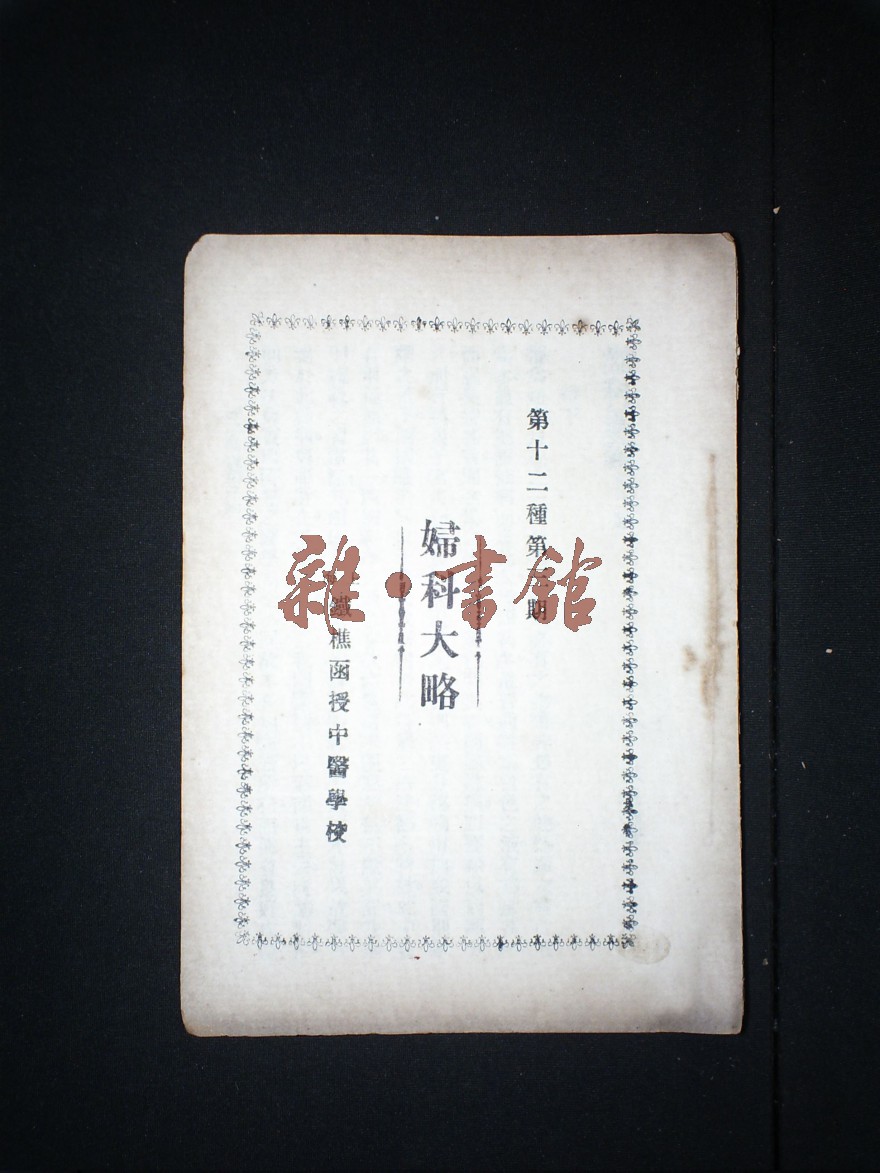 第十二種第期
婦科大略
鐵樵函授中醫學校
雜·書館